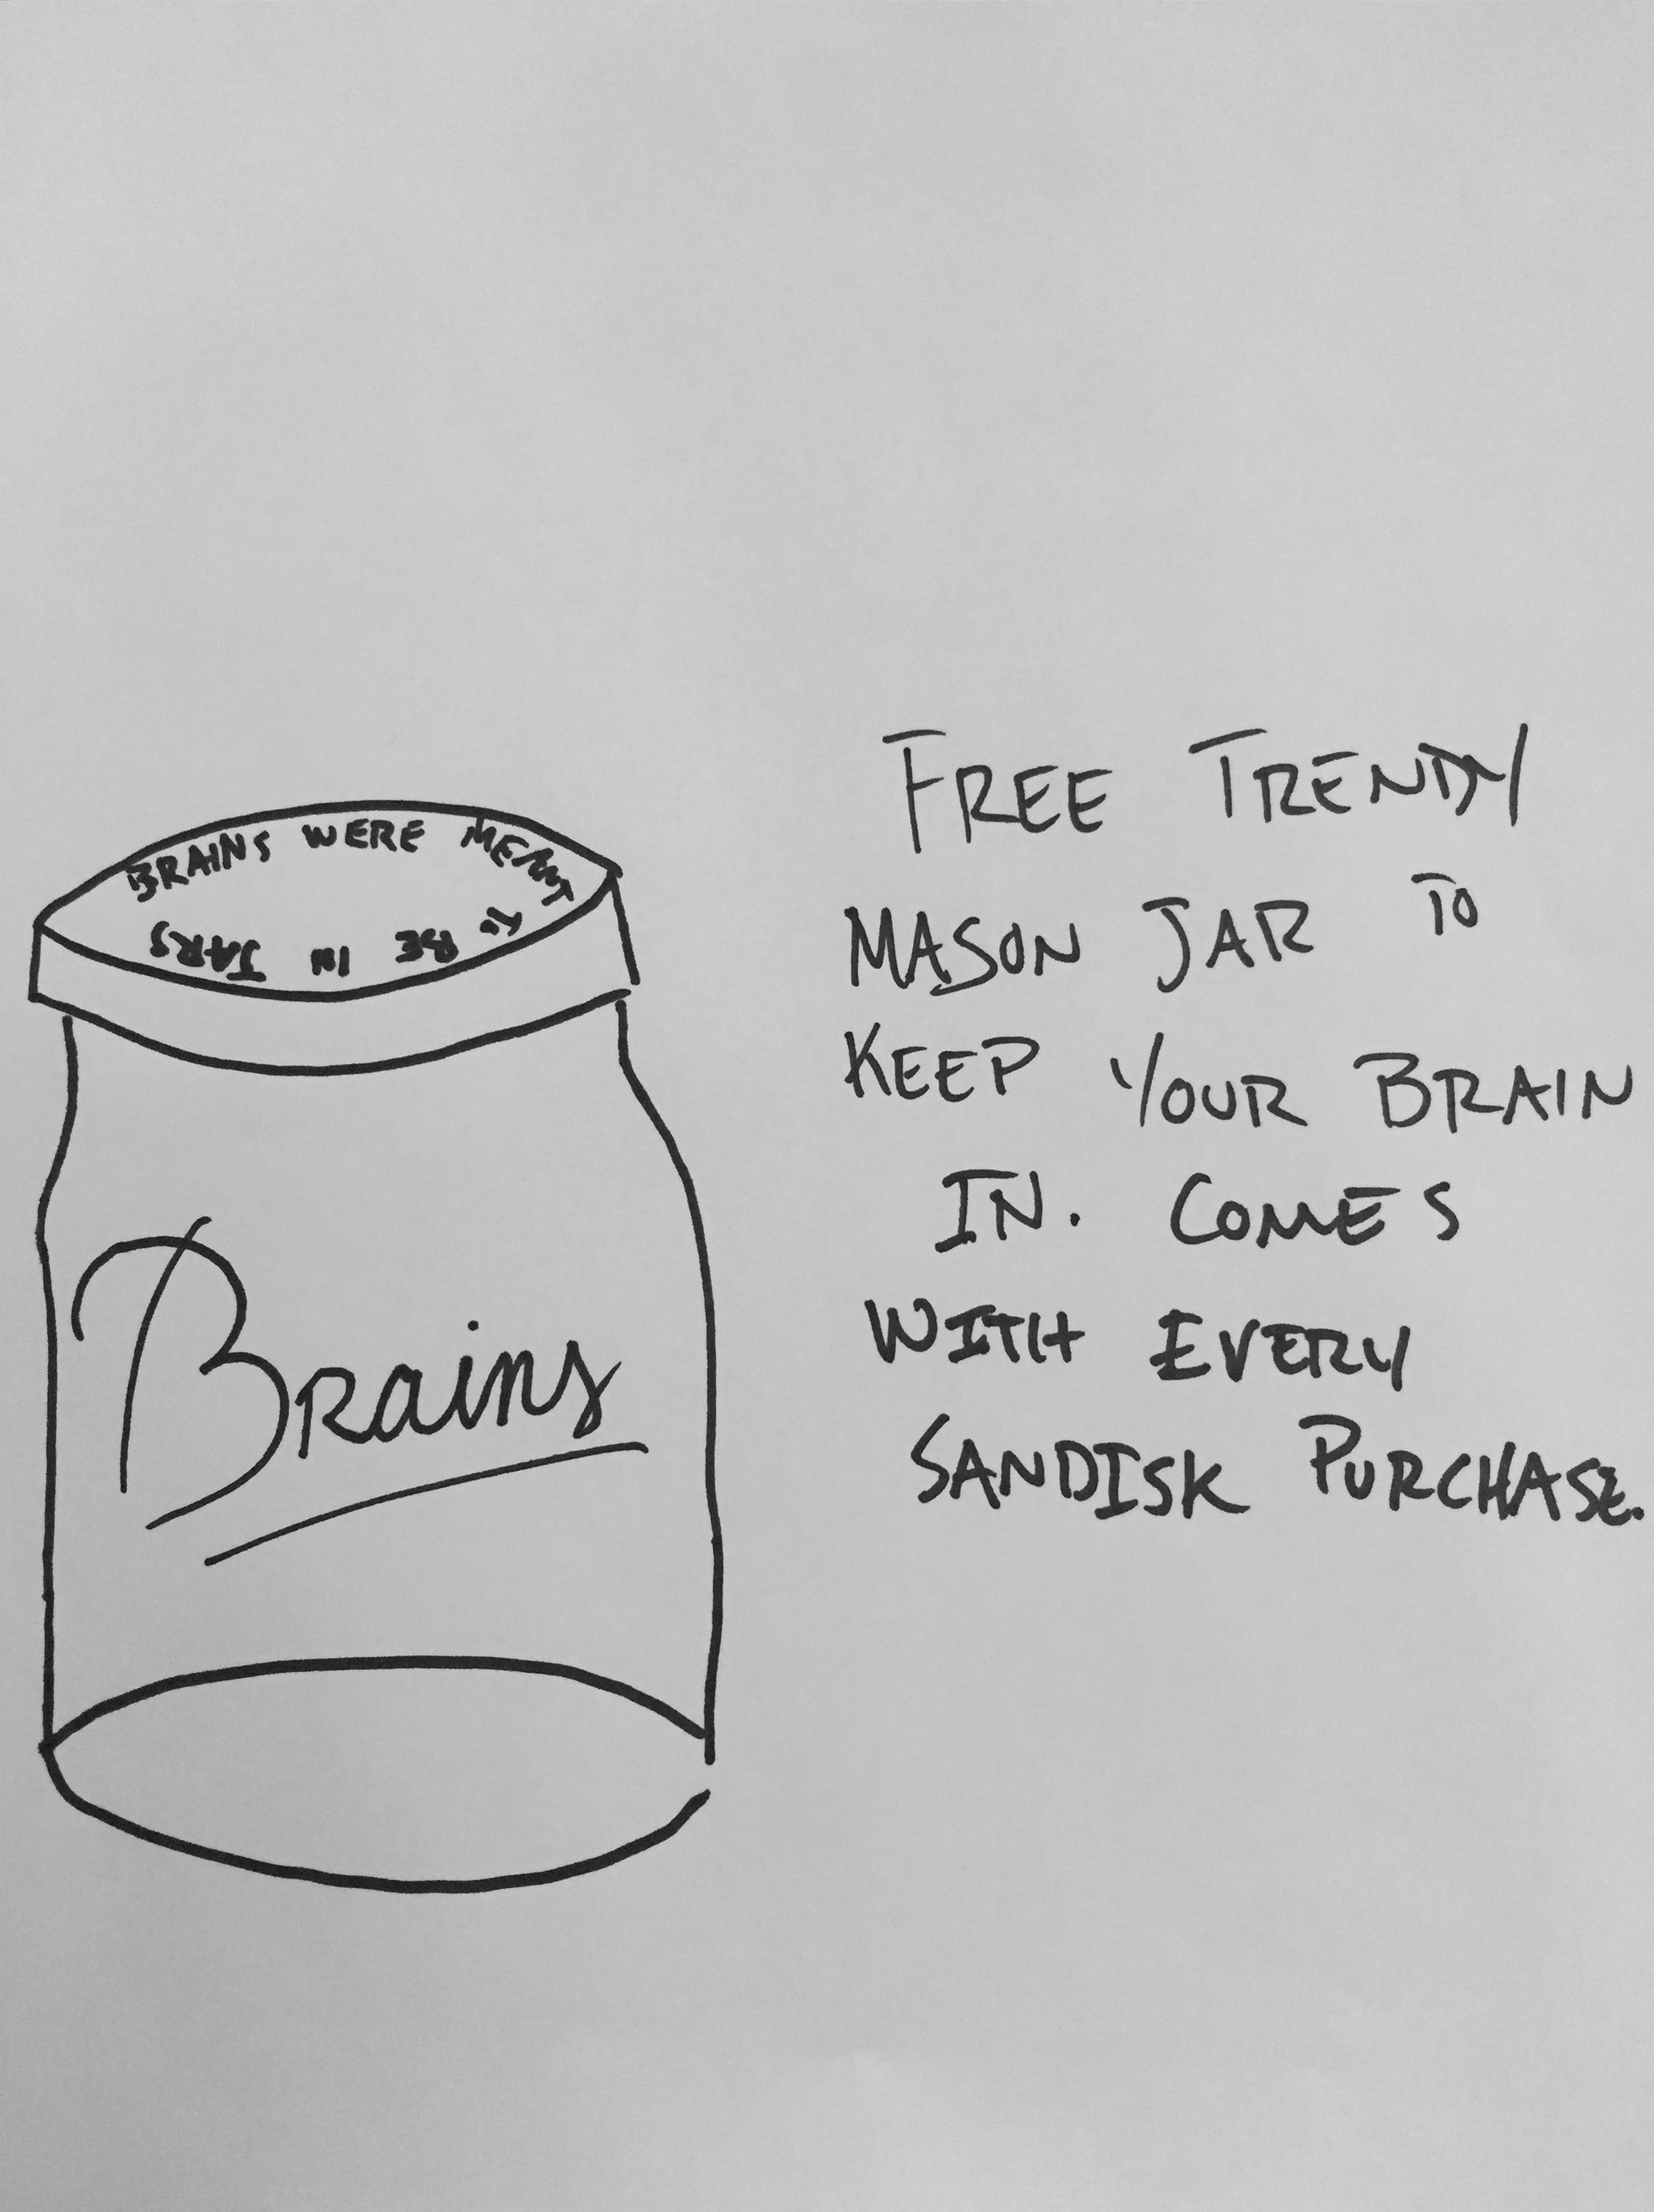 BRAINS WERE MENT
TO BE IN JARS
Brains
FREE TRENDY
MASON JAR TO
KEEP YOUR BRAIN
IN. COMES
WITH EVERY
SANDISK PURCHASE.